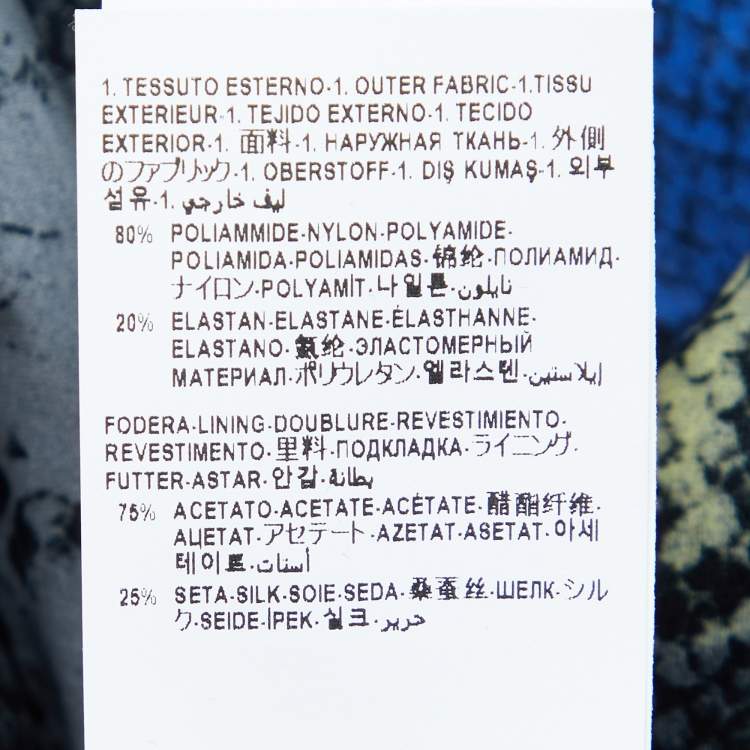 1. TESSUTO ESTERNO·1. OUTER FABRIC·1.TISSU
EXTERIEUR·1. TEJIDO EXTERNO·1. TECIDO
EXTERIOR·1. 面料·1. НАРУЖНАЯ ТКАНЬ·1. 外側
のファブリック·1. OBERSTOFF·1. DIŞ KUMAŞ·1. 외부
섬유·1. ليف خارجي
80% POLIAMMIDE·NYLON·POLYAMIDE·
POLIAMIDA·POLIAMIDAS·锦纶·ПОЛИАМИД·
ナイロン·POLYAMİT·나일론·نايلون
20% ELASTAN·ELASTANE·ÉLASTHANNE·
ELASTANO·氨纶·ЭЛАСТОМЕРНЫЙ
МАТЕРИАЛ·ポリウレタン·엘라스텐·إيلاستين
FODERA·LINING·DOUBLURE·REVESTIMIENTO·
REVESTIMENTO·里料·ПОДКЛАДКА·ライニング·
FUTTER·ASTAR·안감·بطانة
75% ACETATO·ACETATE·ACÉTATE·醋酯纤维·
АЦЕТАТ·アセテート·AZETAT·ASETAT·아세
테이트·أستات
25% SETA·SILK·SOIE·SEDA·桑蚕丝·ШЕЛК·シル
ク·SEIDE·İPEK·실크·حرير